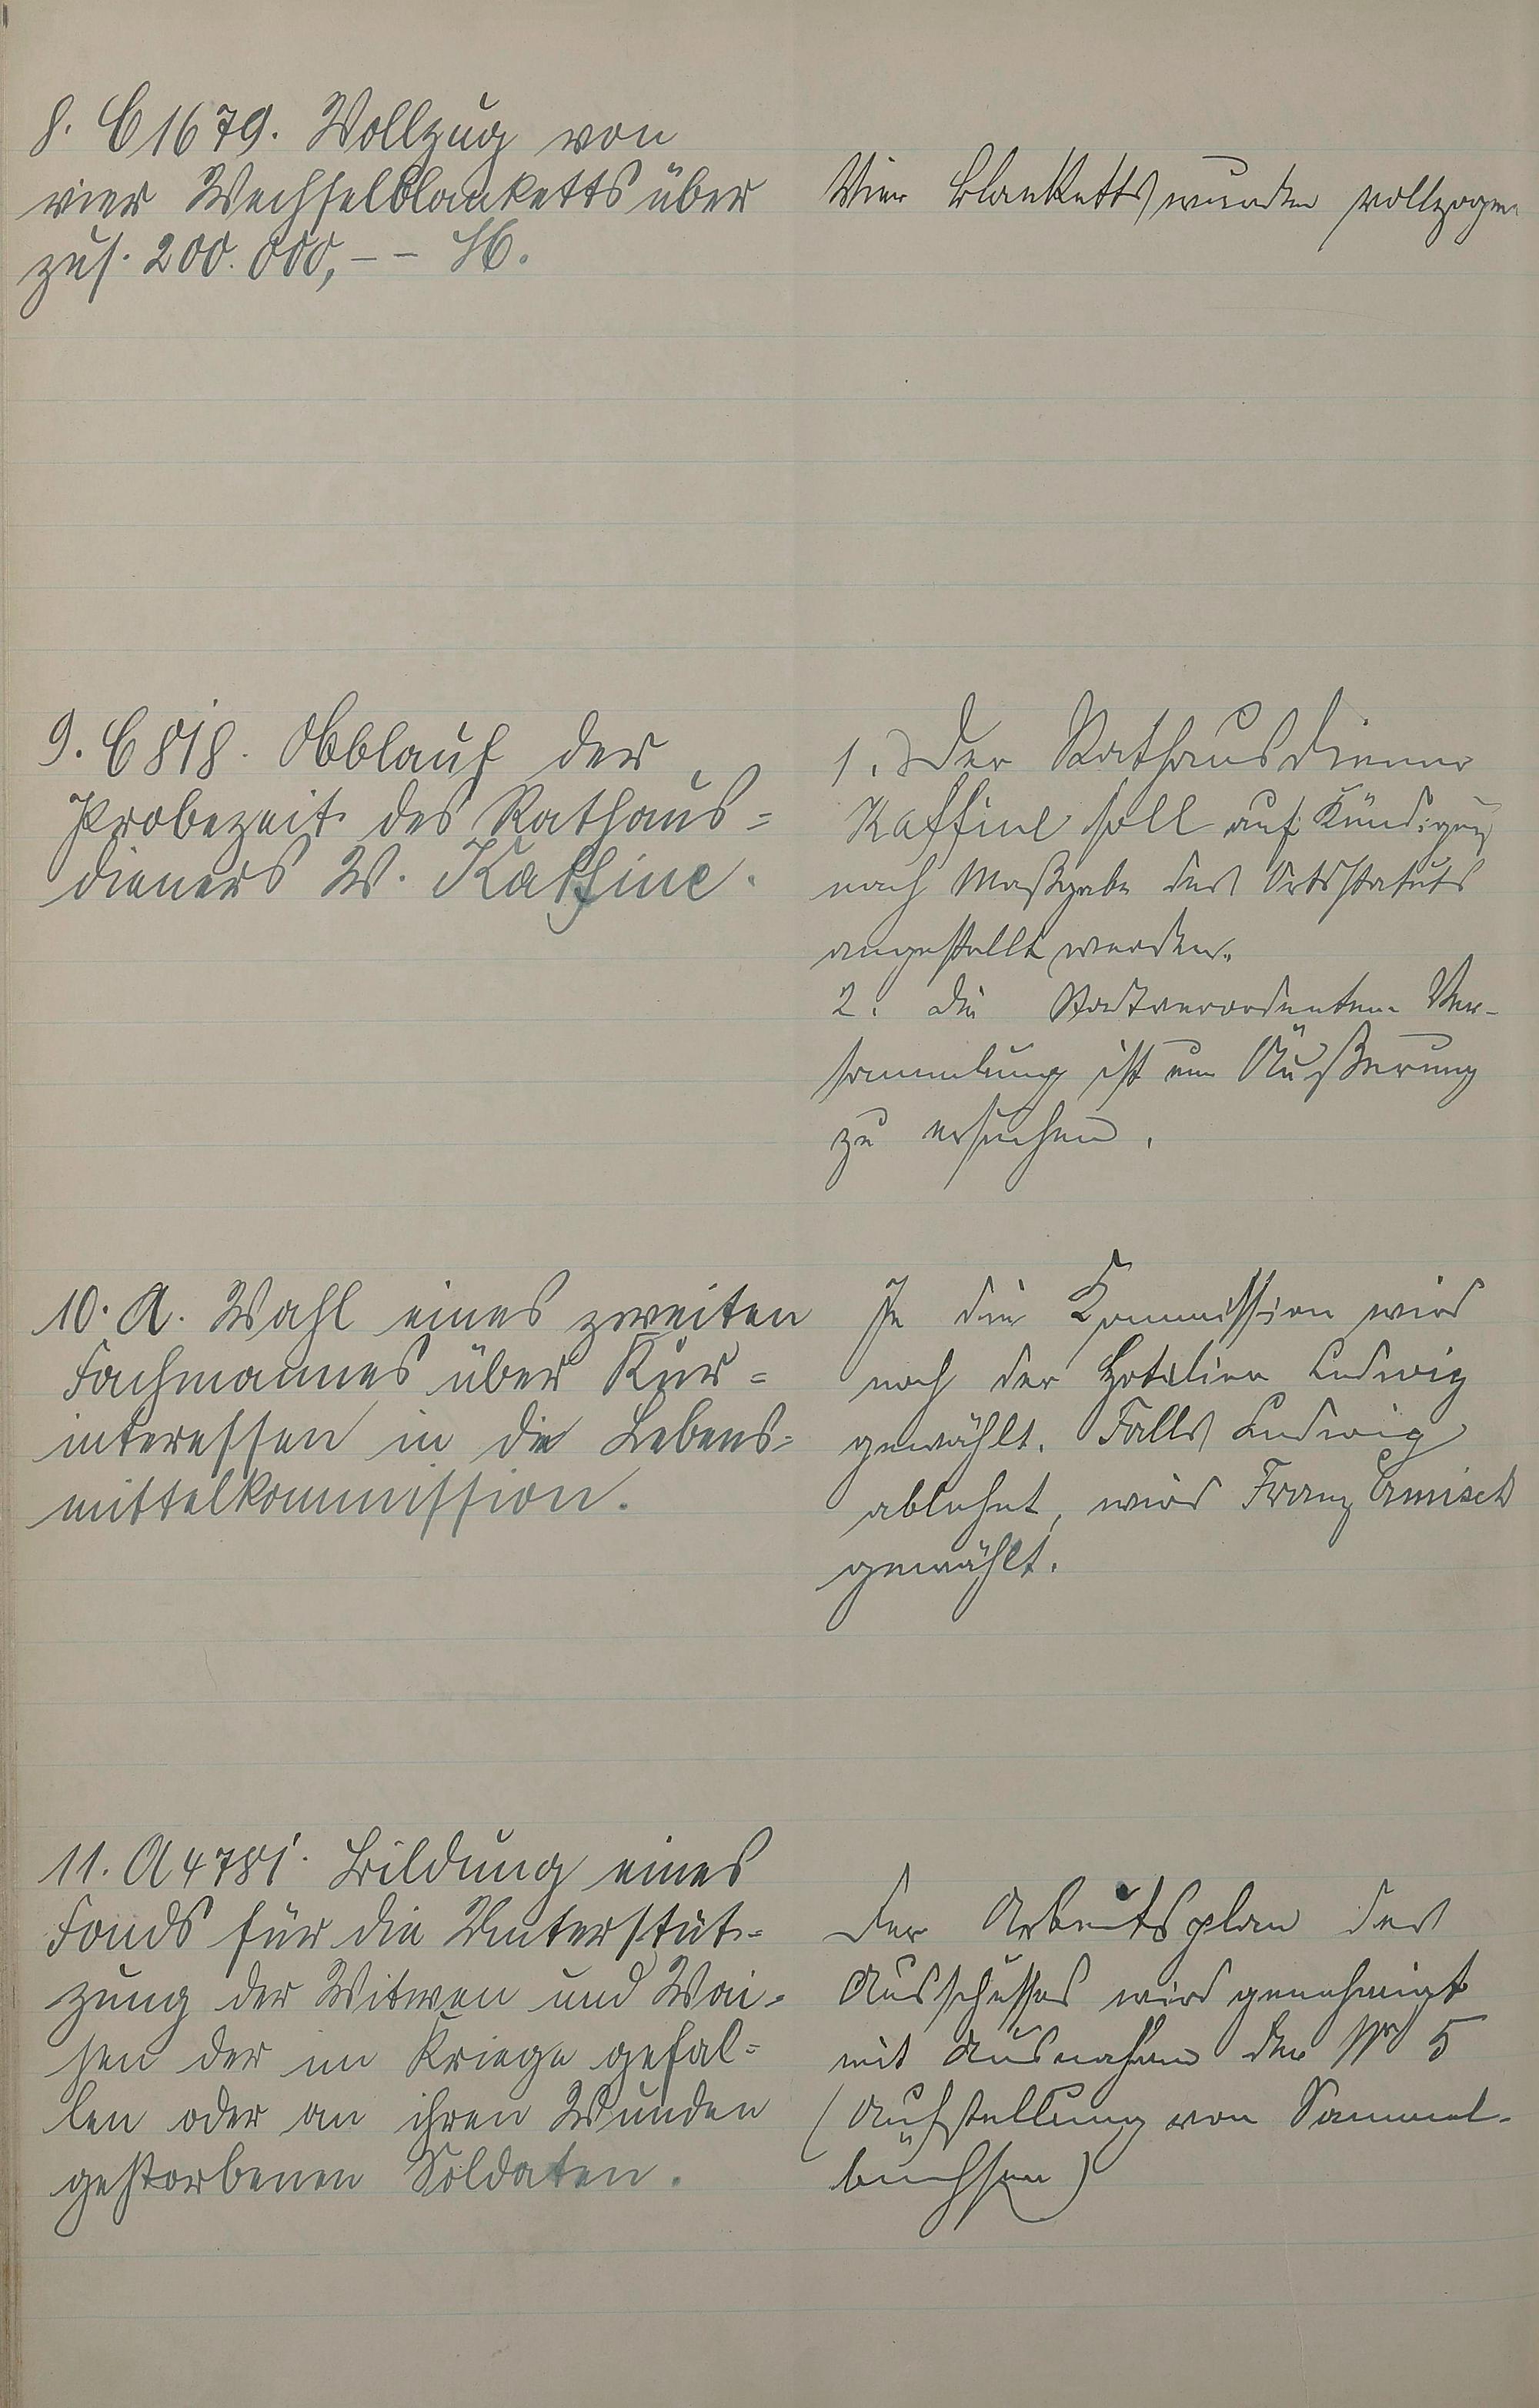 8. C 1679. Vollzug von
vier Wechselblanketts über
zus. 200.000,-- M.
Vier Blanketts wurden vollzogen.
9. C 818. Ablauf der
Probezeit des Rathaus=
dieners W. Kaffine.
1. Der Rathausdiener
Kaffine soll auf Kündigung
nach Maßgabe des Ortsstatuts
angestellt werden.
2. Die Stadtverordneten-Ver-
sammlung ist um Äußerung
zu ersuchen.
10. A. Wahl eines zweiten
Fachmannes über Kur=
interessen in die Lebens=
mittelkommission.
In die Kommission wird
noch der Hotelier Ludwig
gewählt. Falls Ludwig
ablehnt, wird Franz Ernisch
gewählt.
11. A 4781. Bildung eines
Fonds für die Unterstüt=
zung der Witwen und Wai=
sen der im Kriege gefal=
len oder an ihren Wunden
gestorbenen Soldaten.
Der Arbeitsplan des
Ausschusses wird genehmigt
mit Ausnahme der Nr 5
(Aufstellung von Sammel-
büchsen)